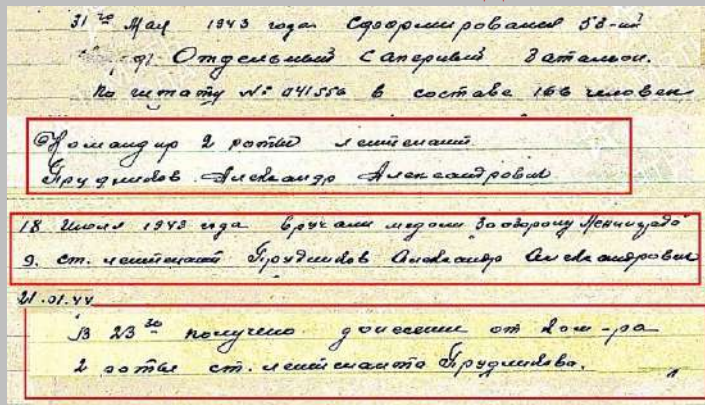 31го Мая 1943 года Сформирован 58-й
Отдельный Саперный Батальон.
По штату № 041556 в составе 166 человек
Командир 2 роты лейтенант
Прудников Александр Александрович
18 Июля 1943 года вручали медали За оборону Ленинграда
9. ст. лейтенант Прудников Александр Александрович
21.01.44
В 23 30 получено донесение от Ком-ра
2 роты ст. лейтенанта Прудникова.